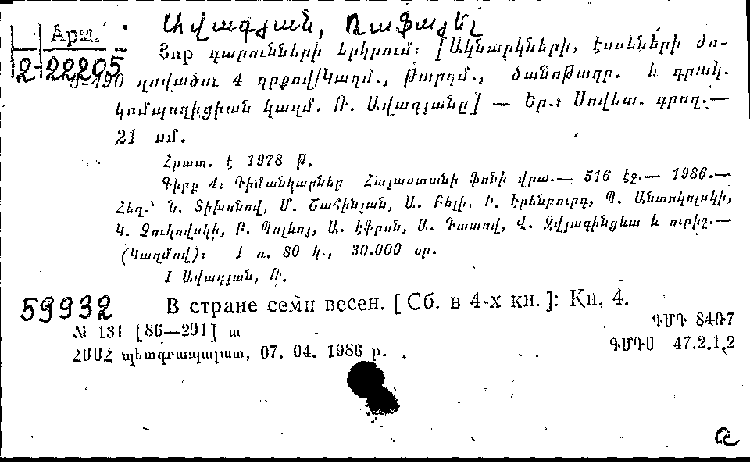 Ավագյան, Ռաֆայել
Արա.
2-22205
Յոթ գարունների երկրում: [Ակնարկների, էսսեների ժո-
ղովածու 4 գրքով/Կազմ., թարգմ., ծանոթագր. և գրակ.
կոմպոզիցիան կազմ. Ռ. Ավագյանը] — Եր.: Սովետ. գրող.—
21 սմ.
Հրատ. է 1978 թ.
Գիրք 4: Դիմանկարներ Հայաստանի ֆոնի վրա.— 516 էջ.— 1986.—
Հեղ.՝ Ն. Տիխոնով, Մ. Շահինյան, Ա. Բելի, Ի. Էրենբուրգ, Պ. Անտոկոլսկի,
Կ. Չուկովսկի, Բ. Պոլևոյ, Ա. Էֆրոս, Մ. Դուդով, Վ. Զվյագինցևա և ուրիշ.—
(Կազմով): 1 ռ. 80 կ., 30.000 օր.
I Ավագյան, Ռ.
59932
В стране семи весен. [Сб. в 4-х кн.]: Кн. 4.
№ 131 [86—291] ա
ԳՄԴ 84Ռ7
ՀՍՍՀ պետգրապալատ, 07. 04. 1986 թ.
ԳՄԴՍ 47.2.1.2